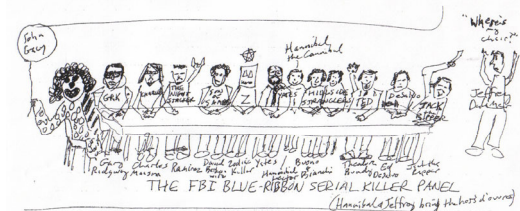 "Where's
my
chair?"
John
Gacy
Hannibal
the Cannibal
GRK
THE NIGHT
STALKER
SON
OF
SAM
Z
YATES
HILLSIDE
STRANGLERS
TED
DeSalvo
JACK
RIPPER
Jeffrey
Dahmer
Gary
Ridgway
Charles
Manson
Ramirez
David
Berko
witz
Zodiac
Killer
Yates
Hannibal
Lector
Buono
Bianchi
Theodore
Bundy
DeSalvo
Jack the
Ripper
THE FBI BLUE-RIBBON SERIAL KILLER PANEL
(Hannibal & Jeffrey bring the hors d'ouvres)